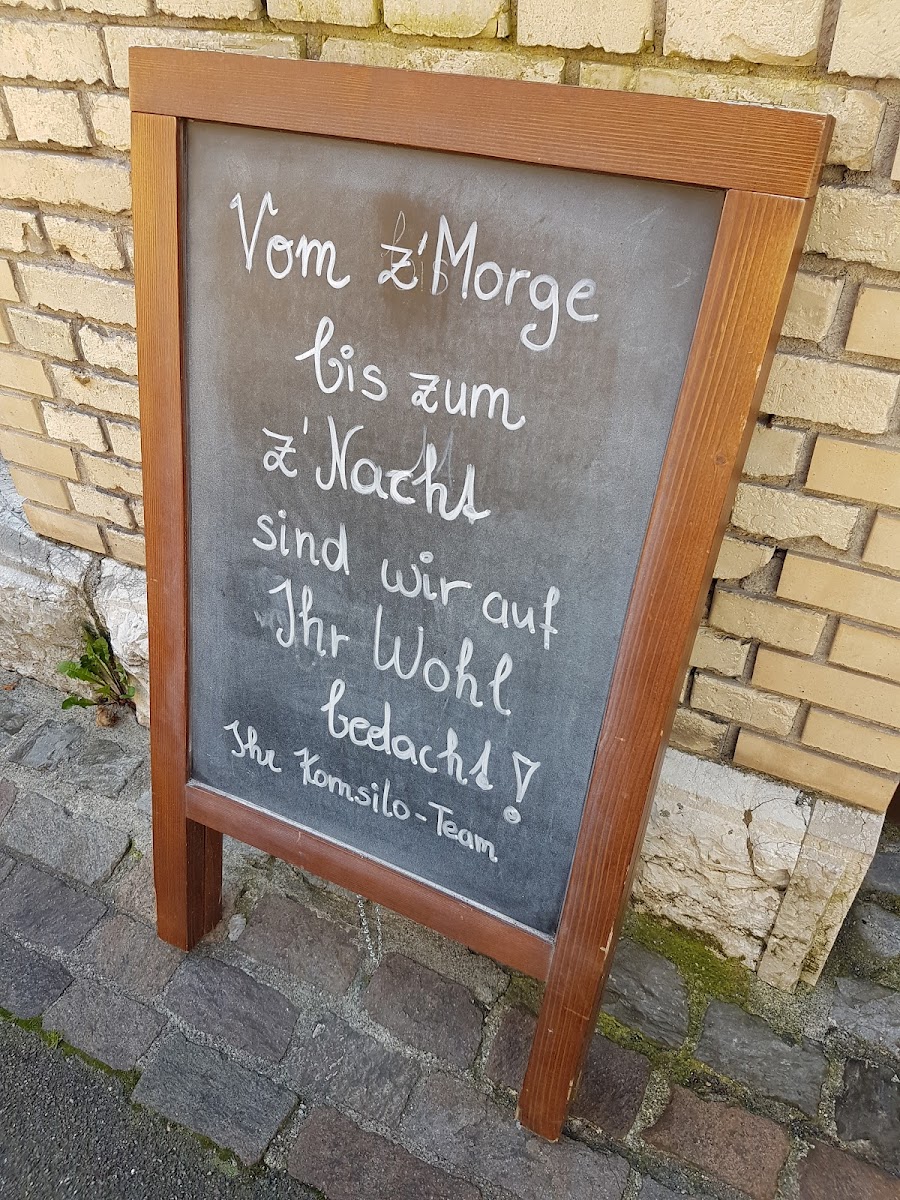 Vom z'Morge
bis zum
z'Nacht
sind wir auf
Ihr Wohl
bedacht!
Ihr Komsilo-Team